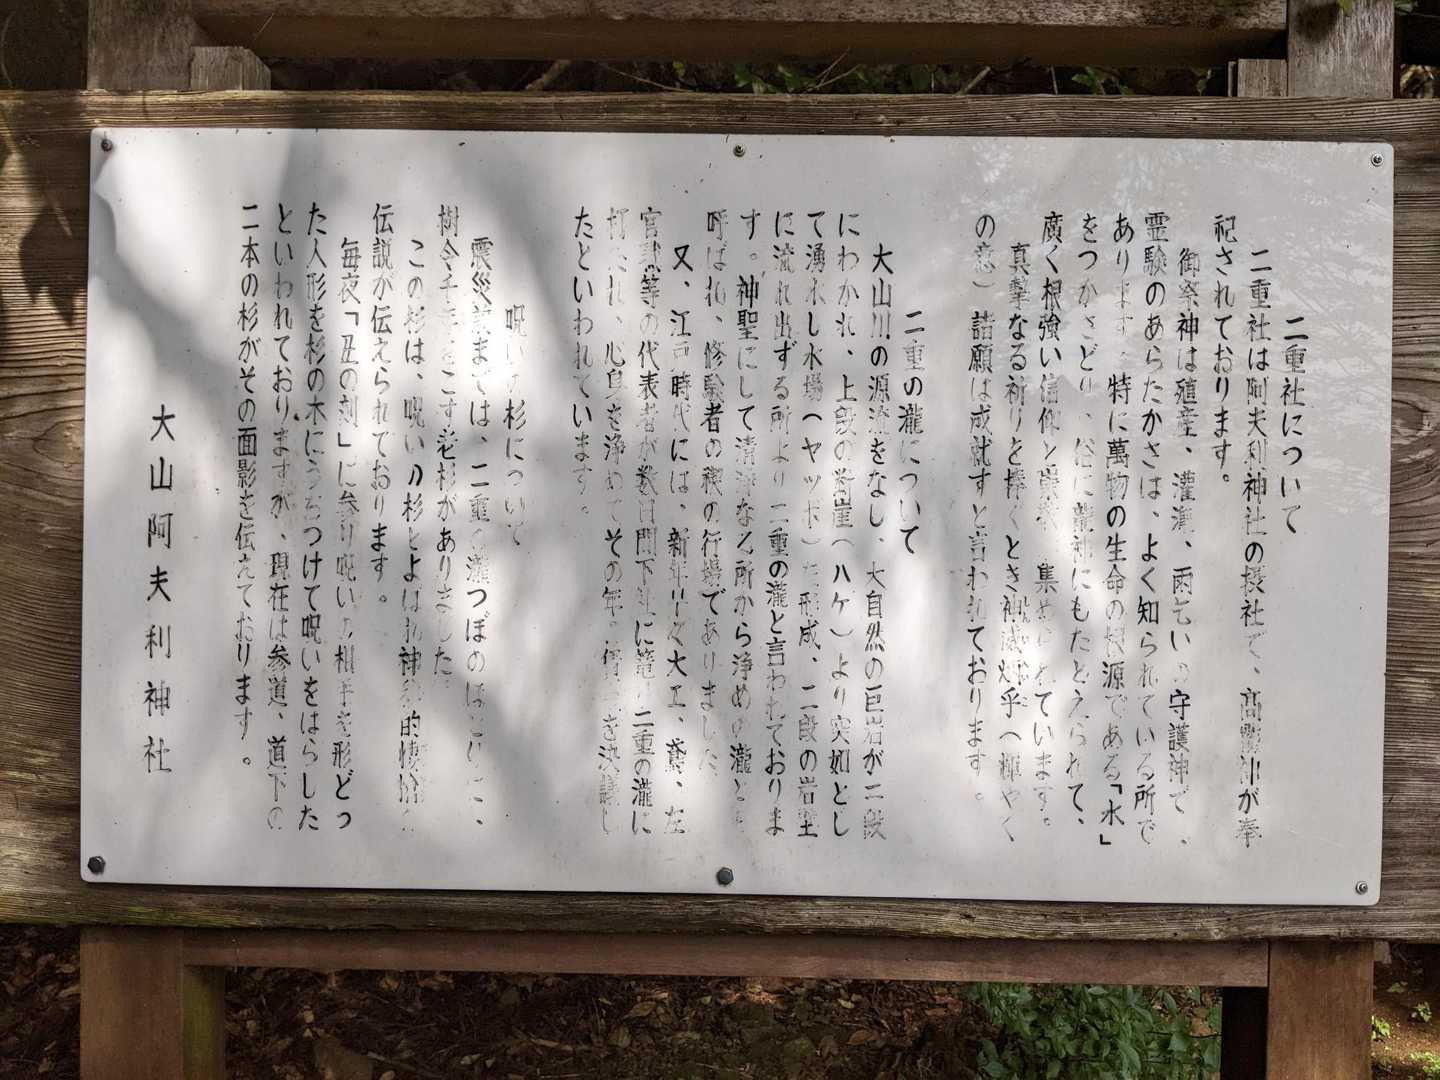 二重社について
二重社は阿夫利神社の摂社で、高龗神が奉
祀されております。
御祭神は殖産、灌漑、雨乞いの守護神で、
霊験のあらたかさは、よく知られている所で
あります。特に萬物の生命の根源である「水」
をつかさどり、俗に龍神にもたとえられて、
廣く根強い信仰と崇敬を集められています。
真摯なる祈りを捧ぐとき神威煌乎(輝やく
の意)諸願は成就すと言われております。
二重の瀧について
大山川の源流をなし、大自然の巨岩が二段
にわかれ、上段の断崖(ハケ)より突如とし
て湧水し水場(ヤツボ)を形成、二段の岩壁
に流れ出ずる所より二重の瀧と言われておりま
す。神聖にして清浄なる所から浄めの瀧とも
呼ばれ、修験者の禊の行場でありました。
又、江戸時代には、新年早々大工、鳶、左
官職等の代表者が数日間下社に篭り二重の瀧に
打たれ、心身を浄めてその年の賃金を決議し
たといわれています。
呪いの杉について
震災前までは、二重の瀧つぼのほとりに、
樹令千年をこす老杉がありました。
この杉は、呪いの杉とよばれ神秘的
伝説が伝えられております。
毎夜「丑の刻」に参り呪いの相手を形どっ
た人形を杉の木にうちつけて呪いをはらした
といわれておりますが、現在は参道、道下の
二本の杉がその面影を伝えております。
大山阿夫利神社